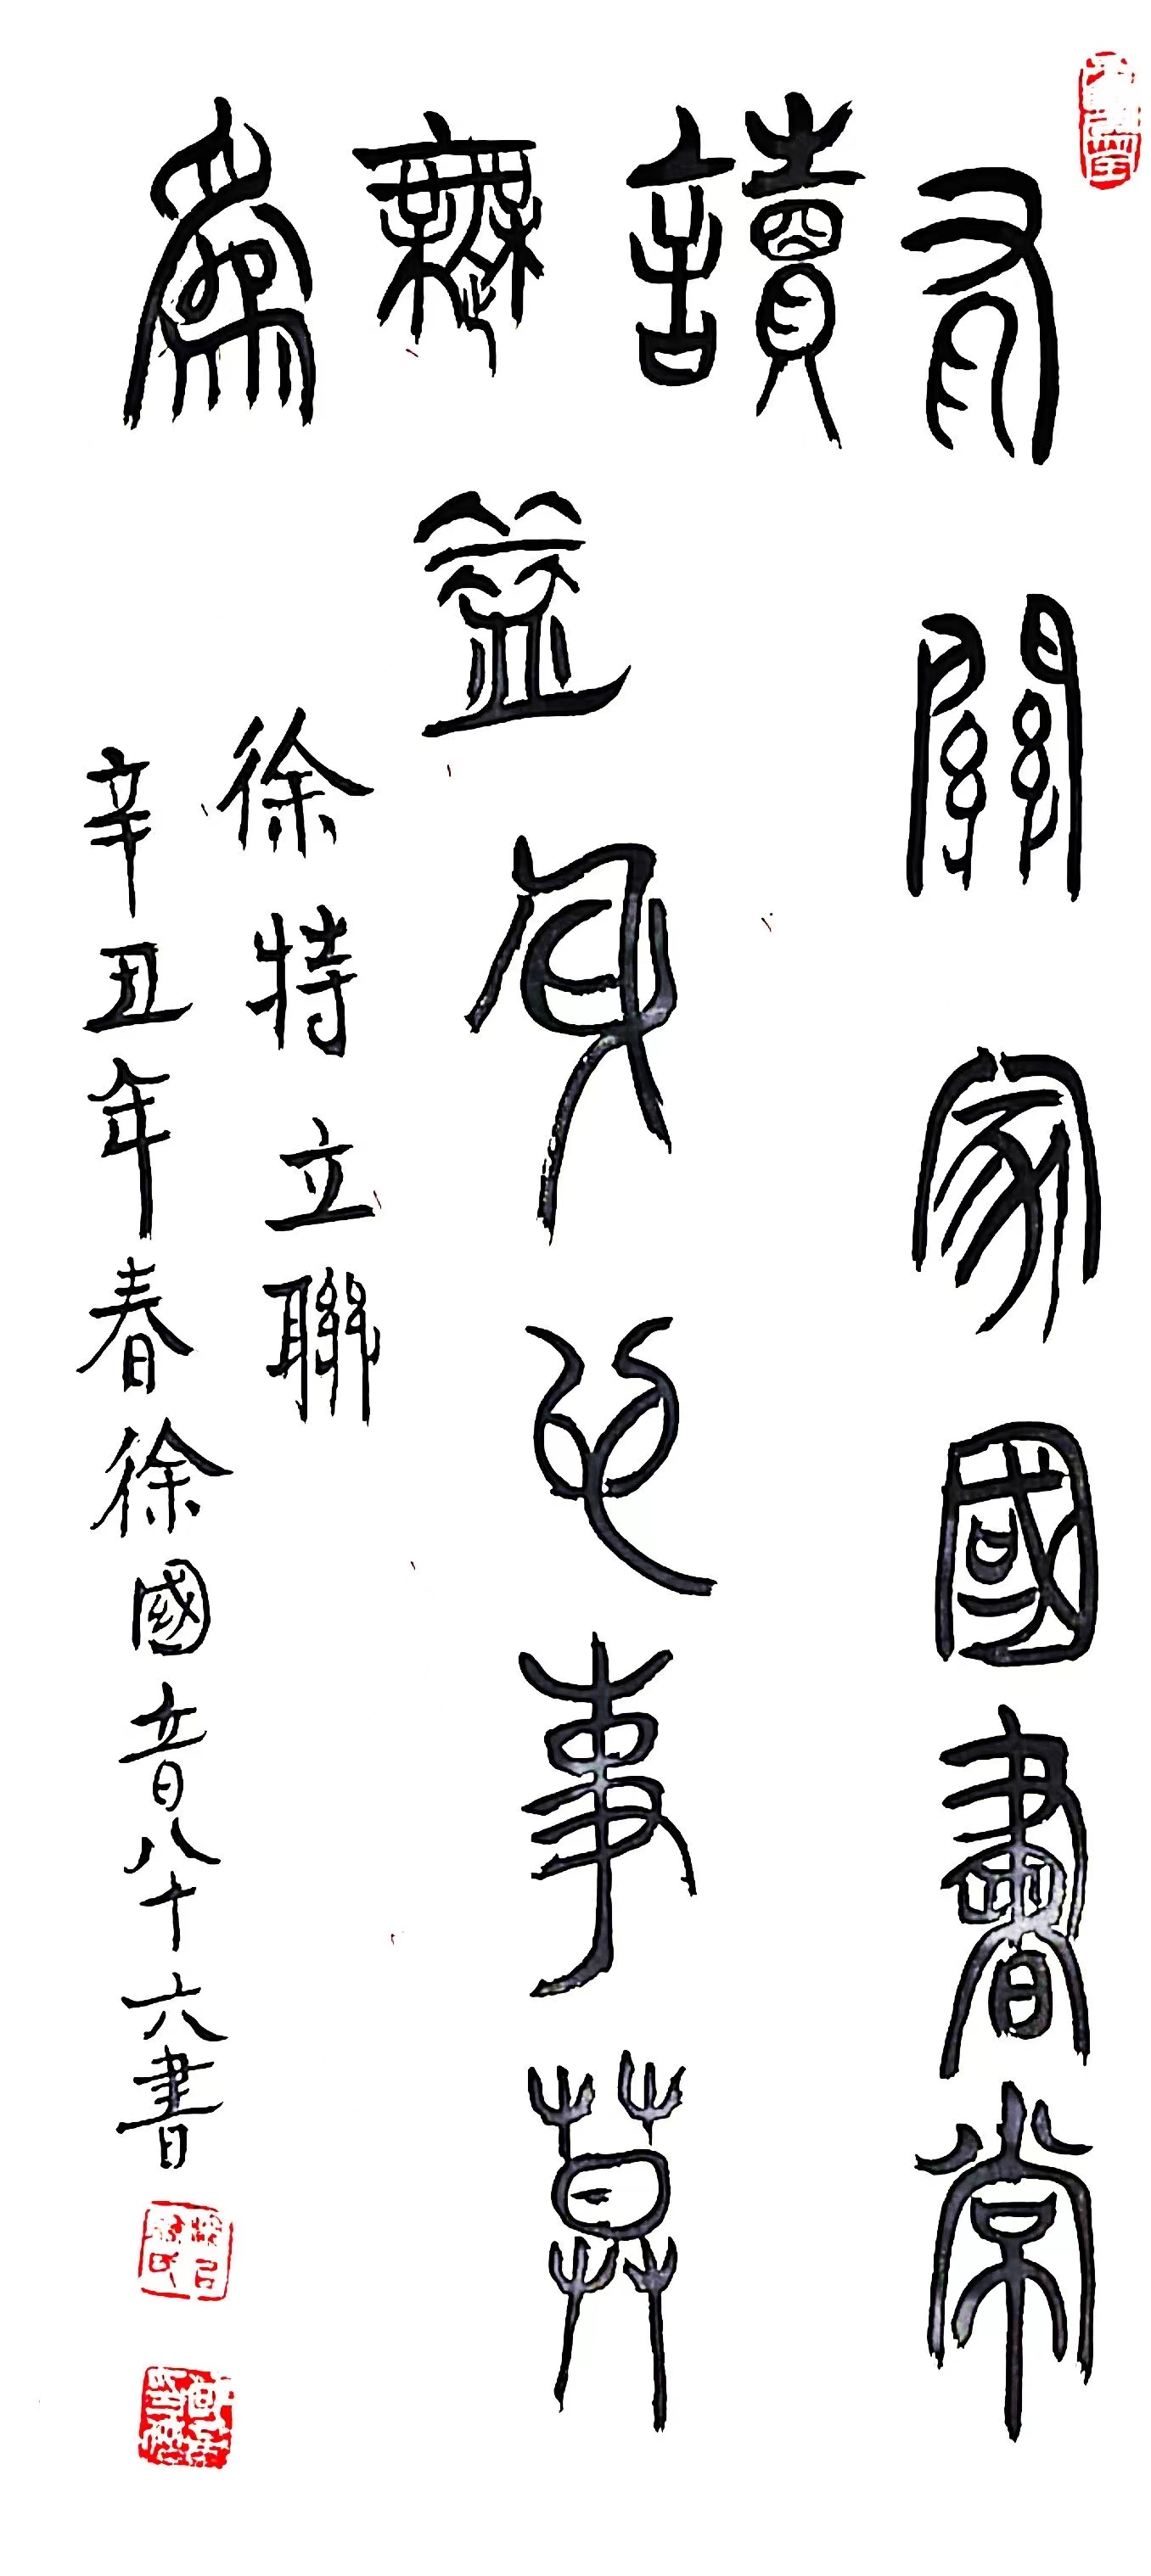 有關家國書常
讀
無益身心事莫
為
徐特立聯
辛丑年春徐國音八十六書